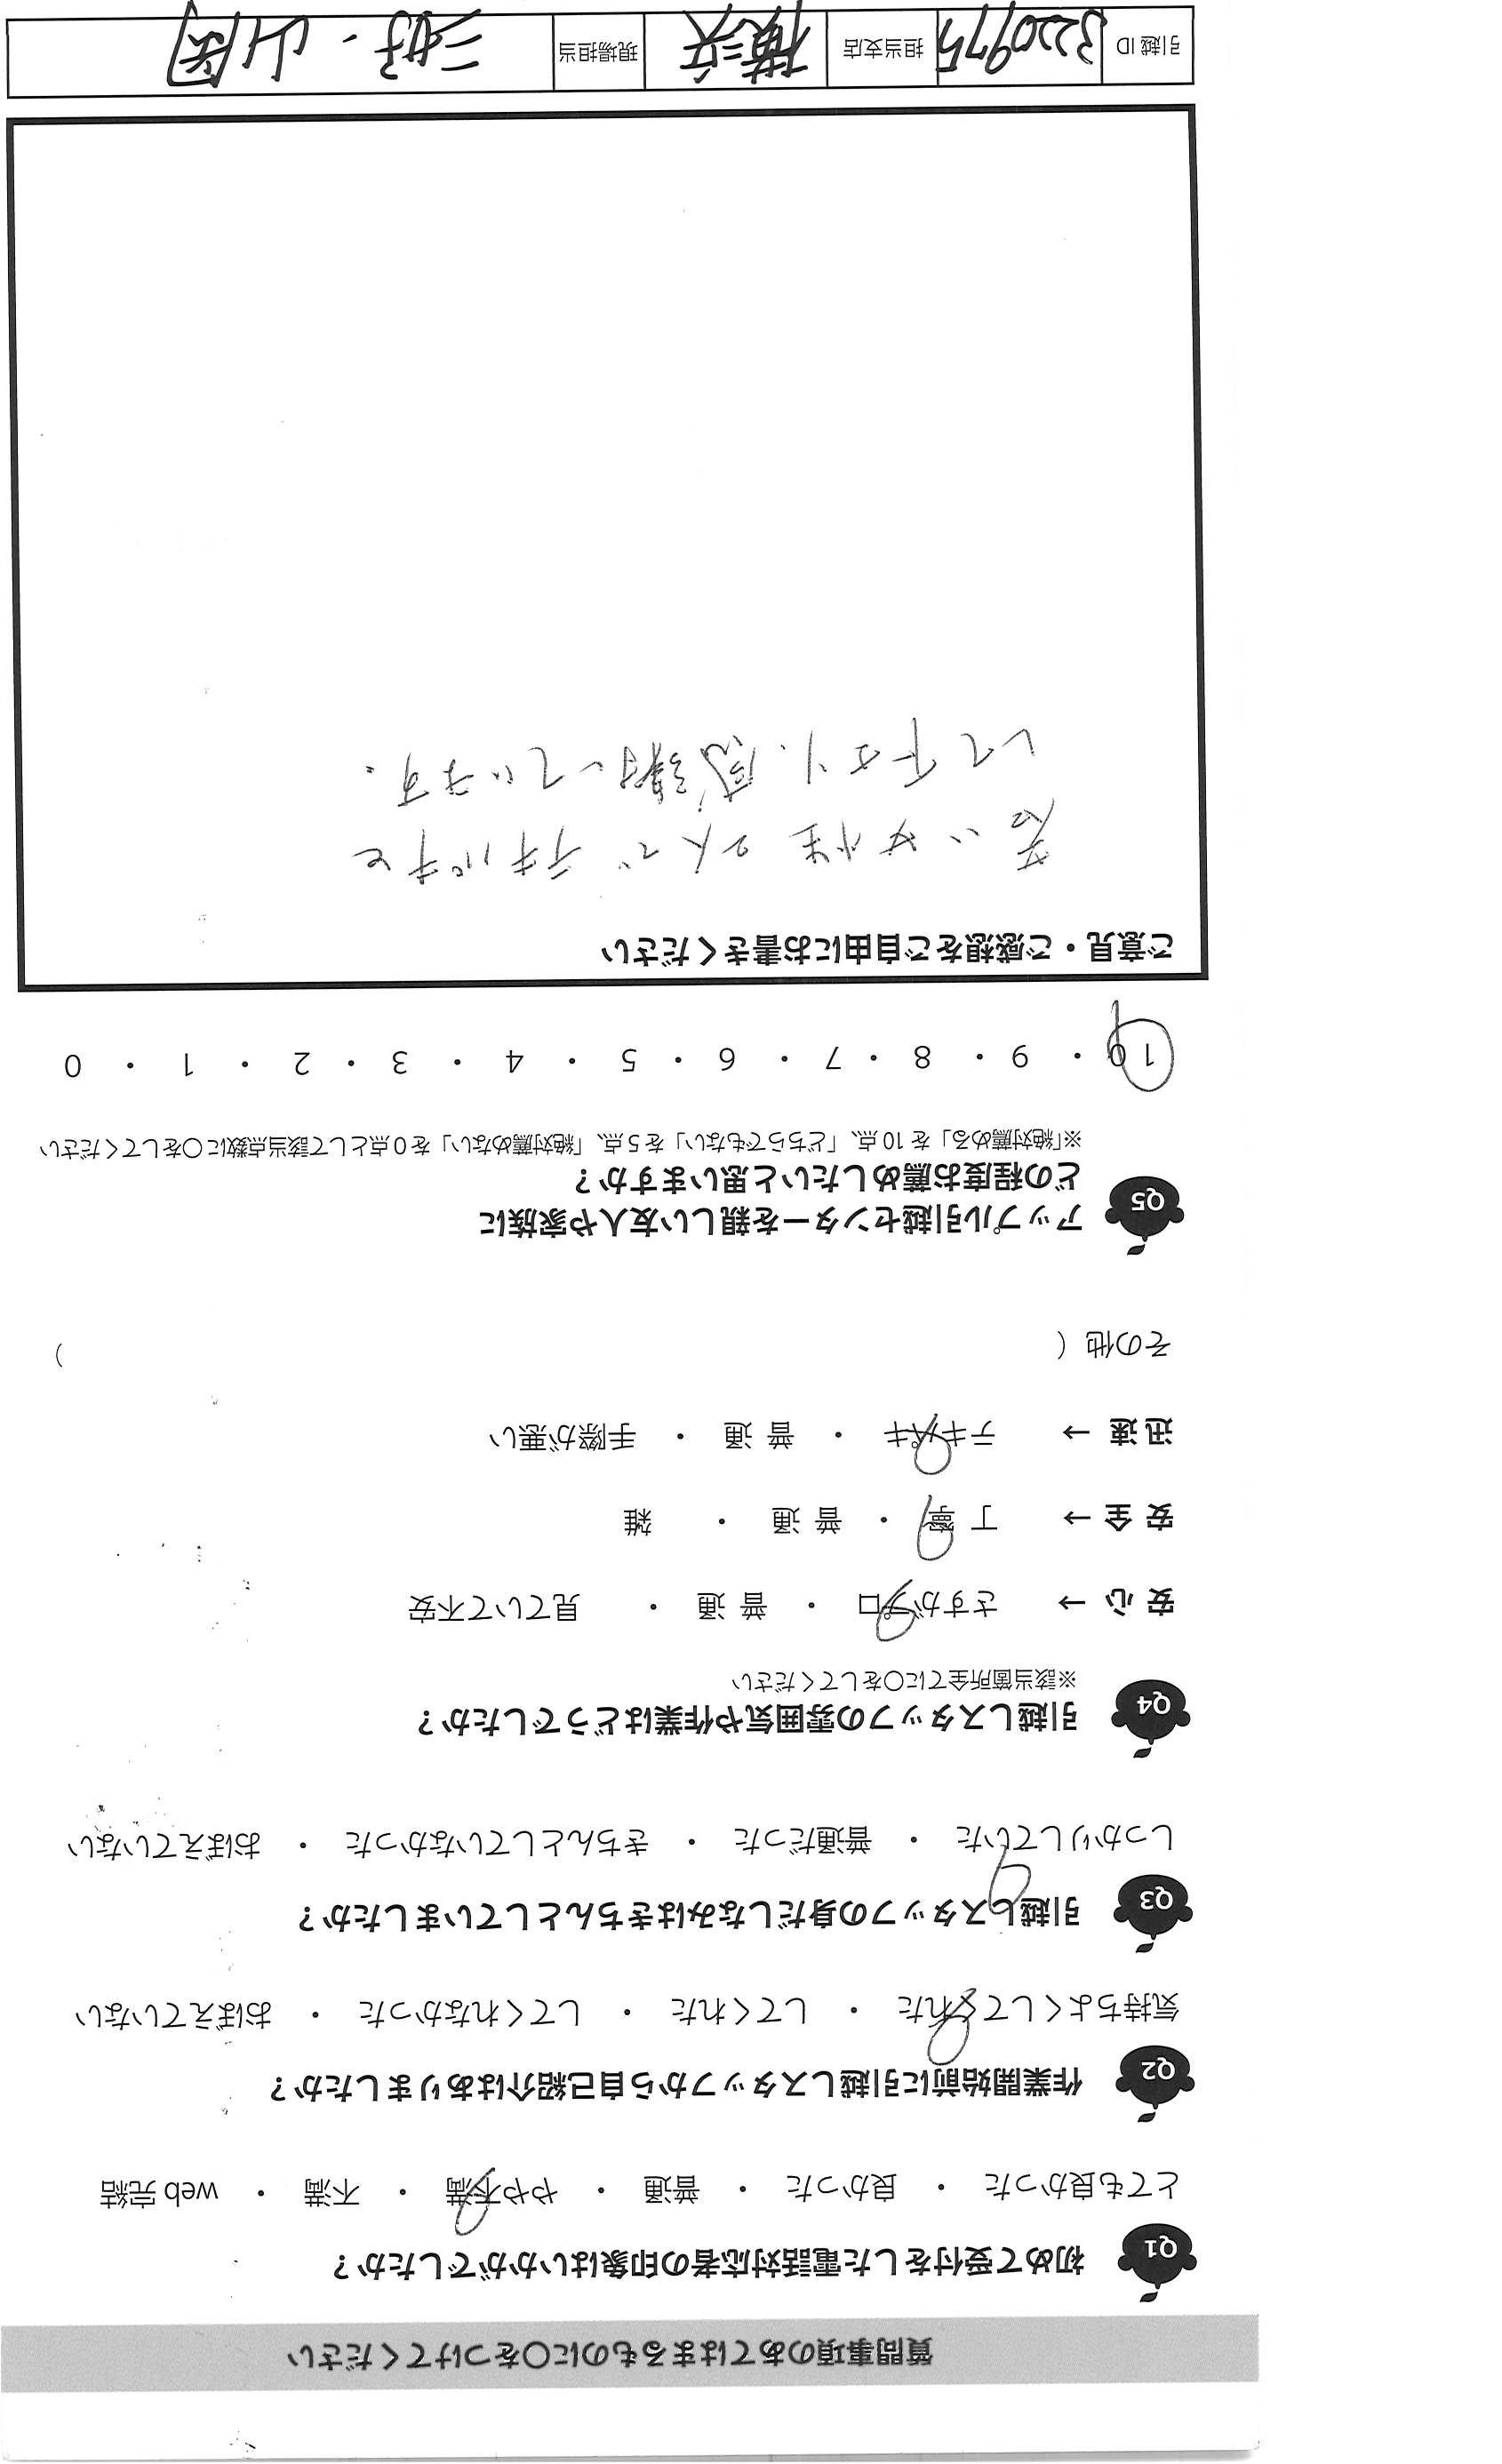 質問事項のあてはまるものに○をつけてください
Q1 初めて受付をした電話対応者の印象はいかがでしたか?
とても良かった ・ 良かった ・ 普通 ・ やや不満 ・ 不満 ・ web完結
Q2 作業開始前に引越しスタッフから自己紹介はありましたか?
気持ちよくしてくれた ・ してくれた ・ してくれなかった ・ おぼえていない
Q3 引越しスタッフの身だしなみはきちんとしていましたか?
しっかりしていた ・ 普通だった ・ きちんとしていなかった ・ おぼえていない
Q4 引越しスタッフの雰囲気や作業はどうでしたか?
※該当箇所全てに○をしてください
安心→ さすがプロ ・ 普通 ・ 見ていて不安
安全→ 丁寧 ・ 普通 ・ 雑
迅速→ テキパキ ・ 普通 ・ 手際が悪い
その他 ( )
Q5 アップル引越センターを親しい友人や家族に
どの程度お薦めしたいと思いますか?
※「絶対薦める」を10点、「どちらでもない」を5点、「絶対薦めない」を0点として該当点数に○をしてください
10 ・ 9 ・ 8 ・ 7 ・ 6 ・ 5 ・ 4 ・ 3 ・ 2 ・ 1 ・ 0
ご意見・ご感想をご自由にお書きください
若い女性2人でテキパキと
して下さり、感謝しています。
引越ID 3220975 担当支店 横浜 現場担当 三好・山岡